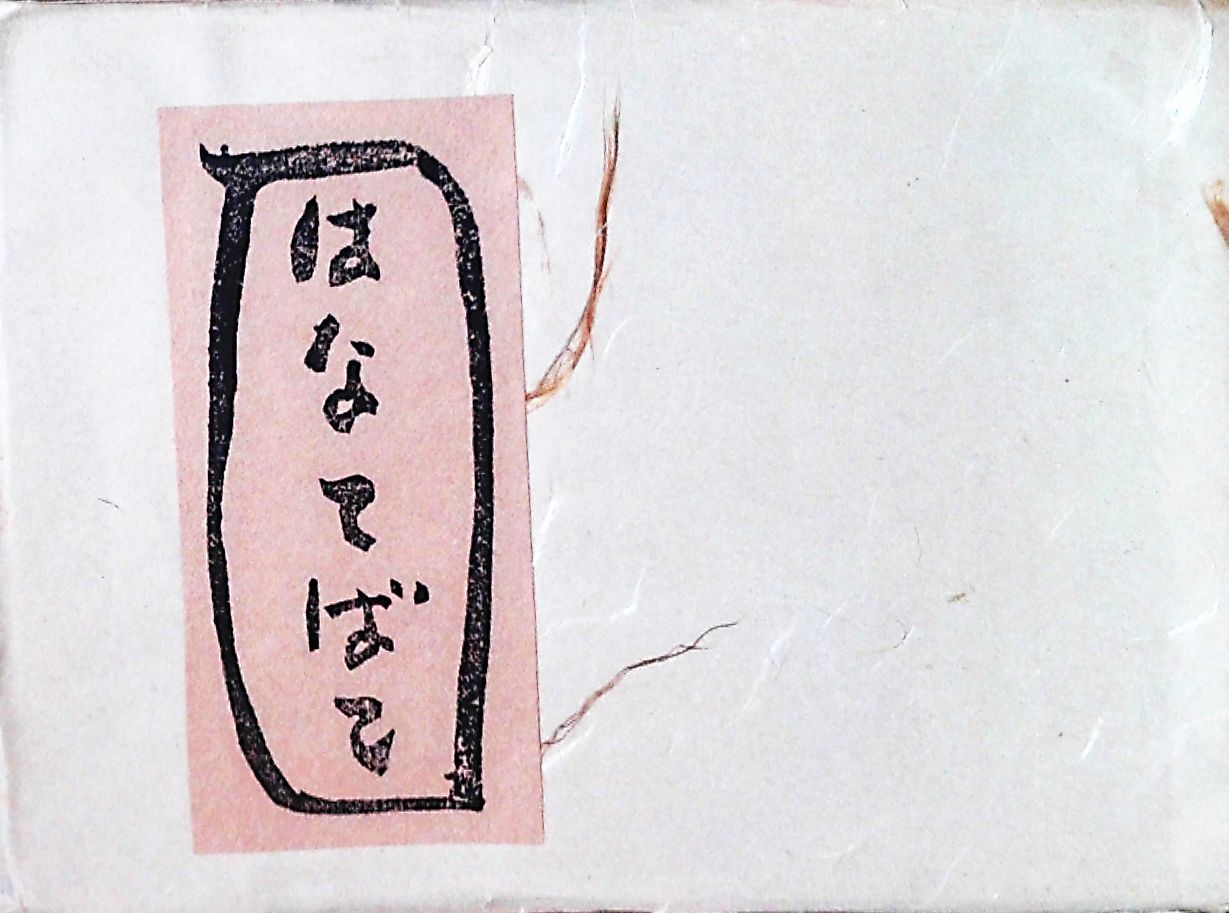 はなてばて